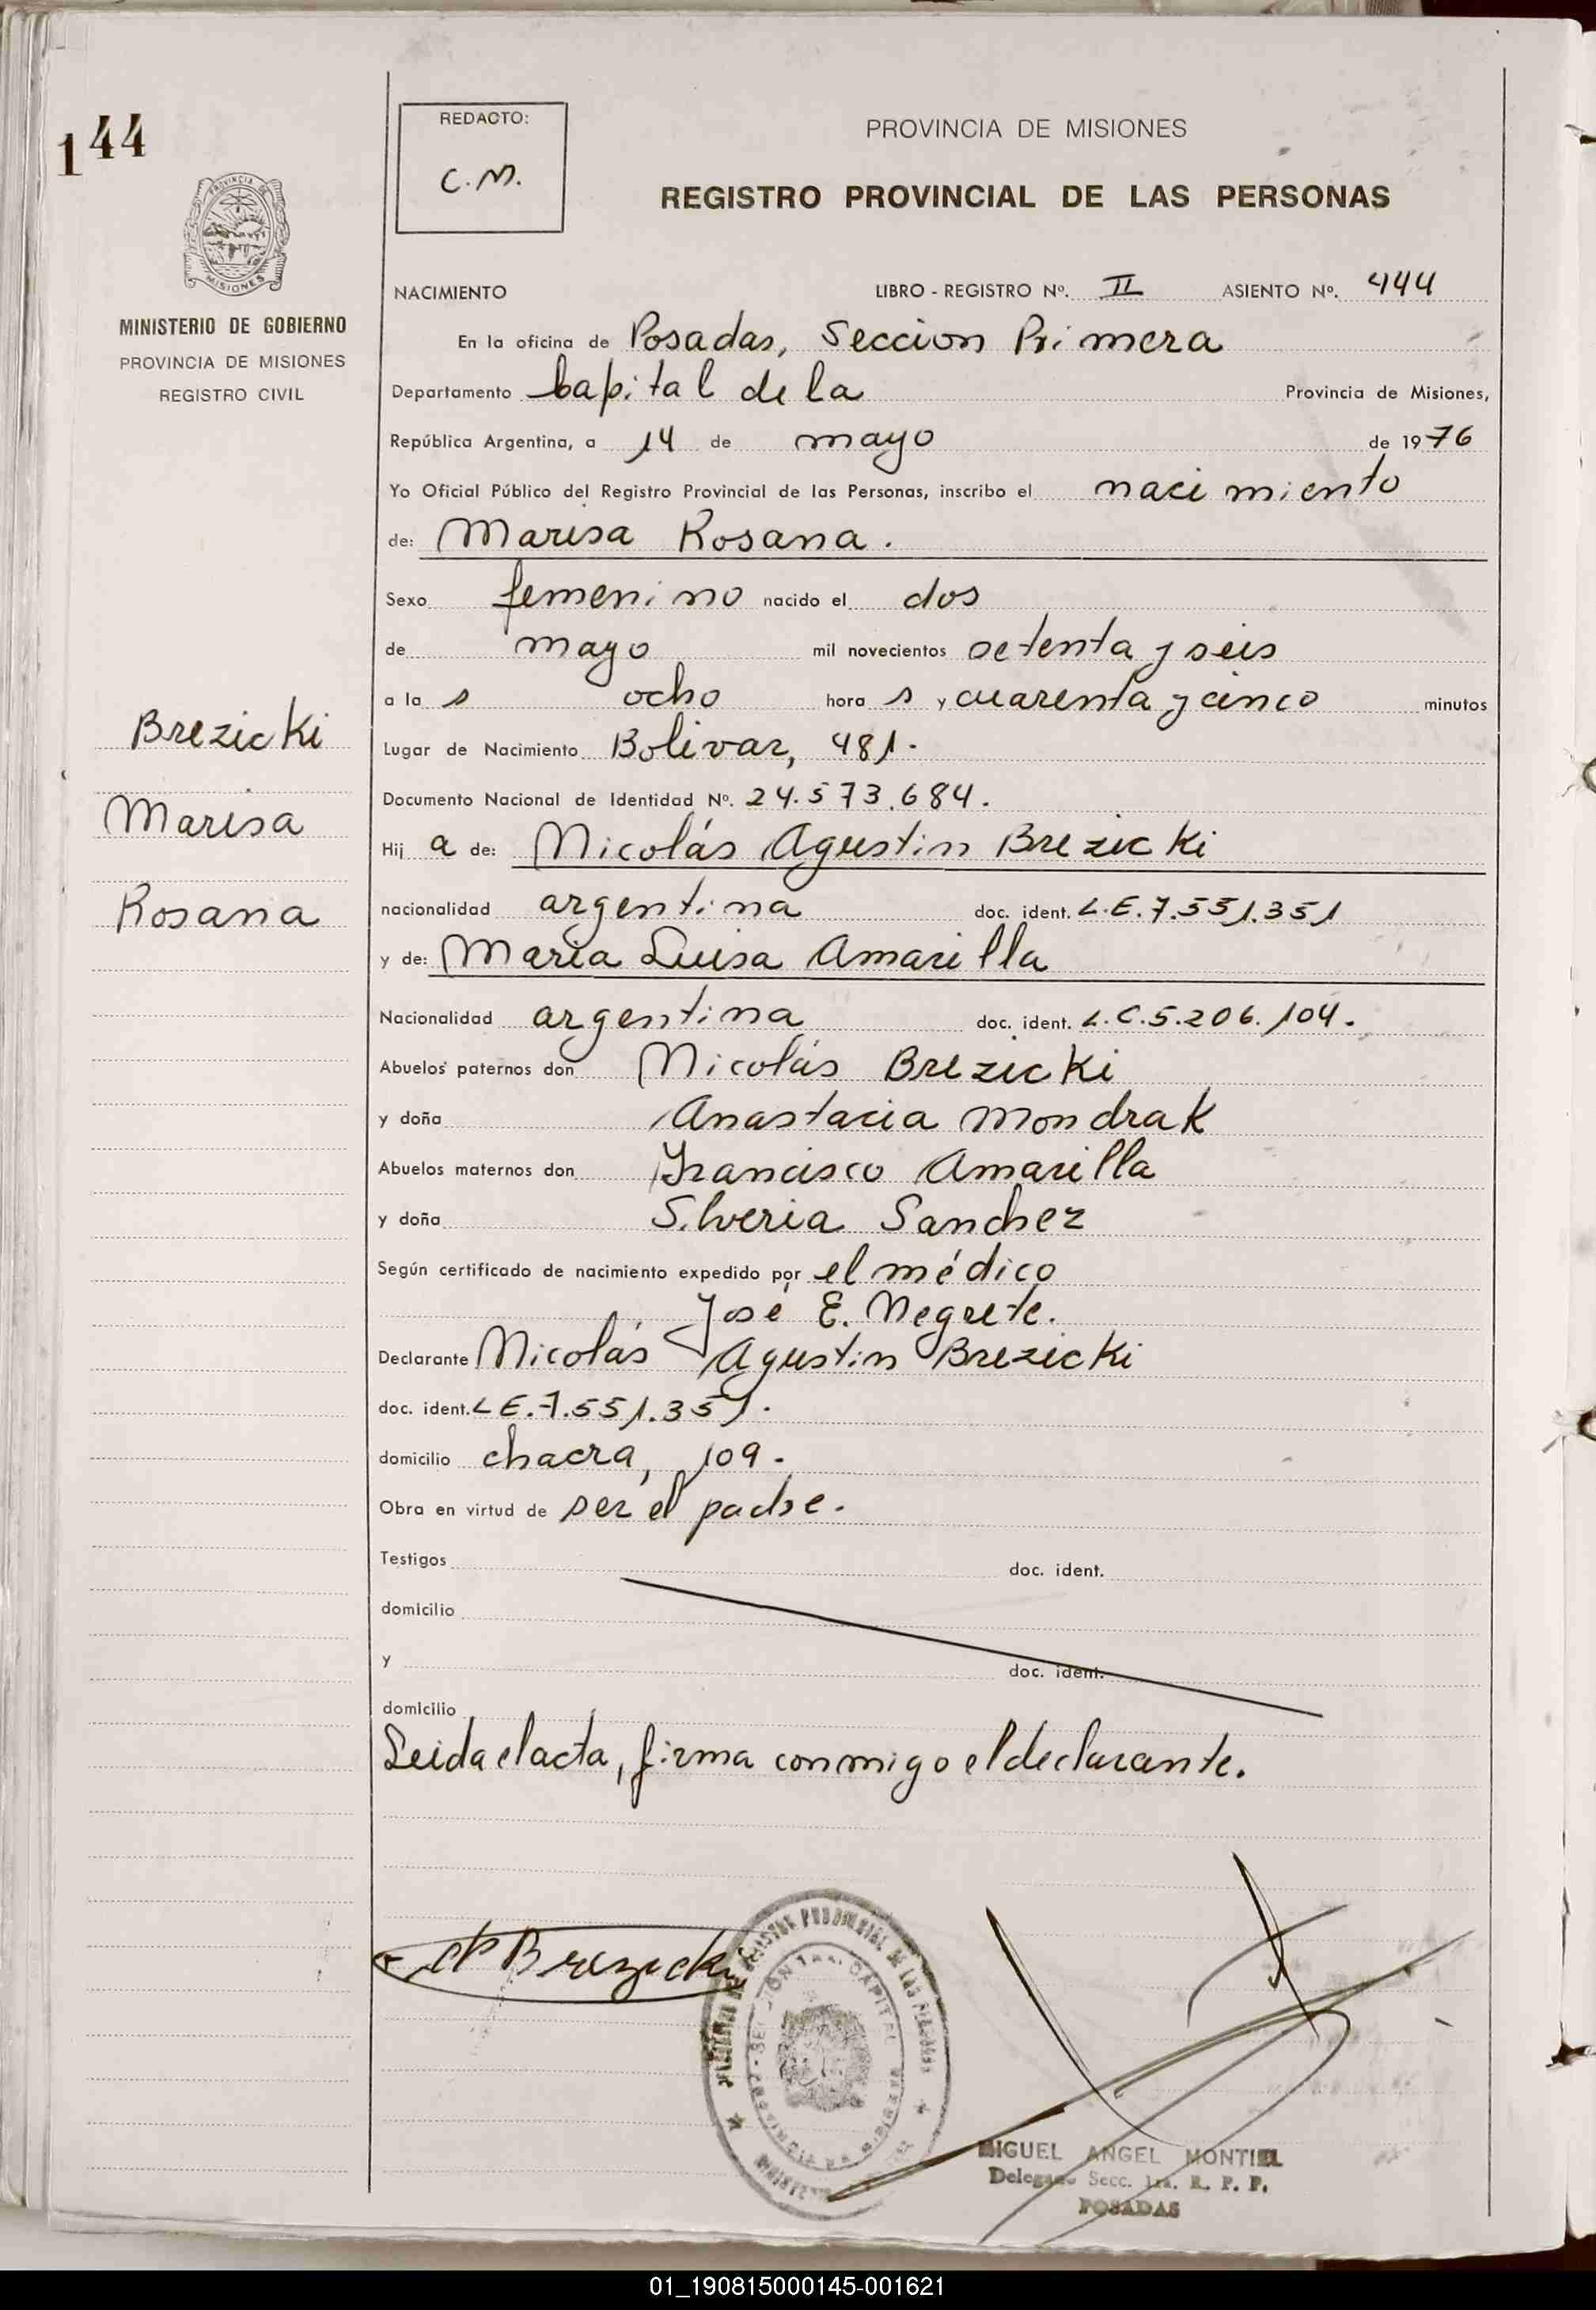 144
REDACTO:
C.M.
PROVINCIA DE MISIONES
REGISTRO PROVINCIAL DE LAS PERSONAS
PROVINCIA DE
MISIONES
MINISTERIO DE GOBIERNO
PROVINCIA DE MISIONES
REGISTRO CIVIL
NACIMIENTO LIBRO - REGISTRO Nº. II ASIENTO Nº. 444
En la oficina de Posadas, Seccion Primera
Departamento Capital de la Provincia de Misiones,
República Argentina, a 14 de mayo de 1976
Yo Oficial Público del Registro Provincial de las Personas, inscribo el nacimiento
de: Marisa Rosana.
Sexo femenino nacido el dos
de mayo mil novecientos setenta y seis
a la s ocho hora s y cuarenta y cinco minutos
Lugar de Nacimiento Bolivar, 481.
Documento Nacional de Identidad Nº. 24.573.684.
Hij a de: Nicolás Agustin Brezicki
nacionalidad argentina doc. ident. L.E.7.551.351
y de: Maria Luisa Amarilla
Nacionalidad argentina doc. ident. L.C.5.206.104.
Abuelos paternos don Nicolás Brezicki
y doña Anastacia Mondrak
Abuelos maternos don Francisco Amarilla
y doña Silveria Sanchez
Según certificado de nacimiento expedido por el médico
José E. Negrete.
Declarante Nicolás Agustin Brezicki
doc. ident. L E.7.551.351.
domicilio chacra, 109.
Obra en virtud de ser el padre.
Testigos doc. ident.
domicilio
y doc. ident.
domicilio
Leida el acta, firma conmigo el declarante.
Brezicki
Marisa
Rosana
Brezicki
MIGUEL ANGEL MONTIEL
Delegado Secc. 1ra. R. P. P.
POSADAS
01_190815000145-001621